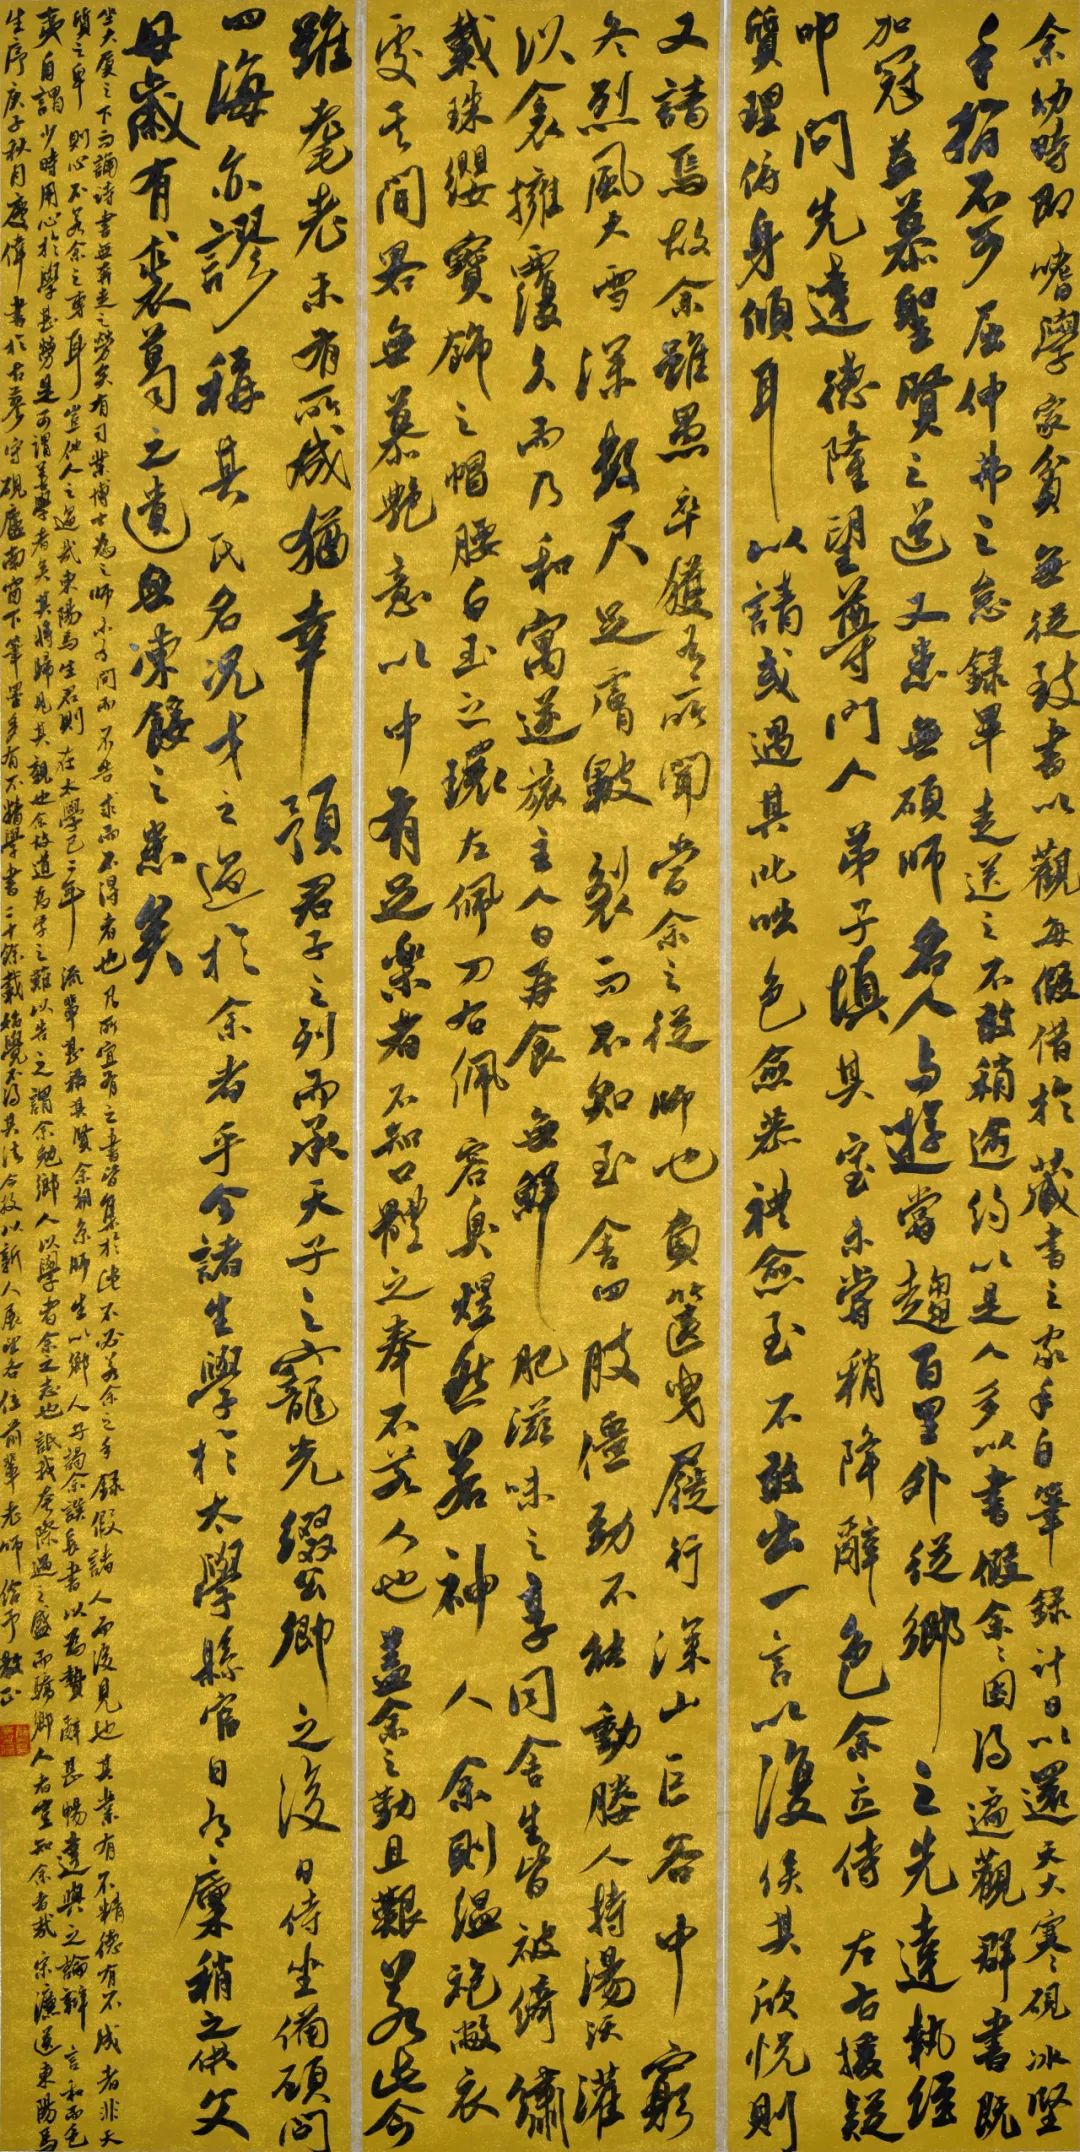 余幼時即嗜學家貧無從致書以觀每假借於藏書之家手自筆錄計日以還天大寒硯冰堅
手指不可屈伸弗之怠錄畢走送之不敢稍逾約以是人多以書假余余因得遍觀群書既
加冠益慕聖賢之道又患無碩師名人與遊嘗趨百里外從鄉之先達執經
叩問先達德隆望尊門人弟子填其室未嘗稍降辭色余立侍左右援疑
質理俯身傾耳以請或遇其叱咄色愈恭禮愈至不敢出一言以復俟其欣悅則
又請焉故余雖愚卒獲有所聞當余之從師也負篋曳屣行深山巨谷中窮
冬烈風大雪深數尺足膚皸裂而不知至舍四肢僵勁不能動媵人持湯沃灌
以衾擁覆久而乃和寓逆旅主人日再食無鮮肥滋味之享同舍生皆被綺繡
戴珠纓寶飾之帽腰白玉之環左佩刀右佩容臭煜然若神人余則縕袍敝衣
處其間略無慕艷意以中有足樂者不知口體之奉不若人也蓋余之勤且艱若此今
雖耄老未有所成猶幸預君子之列而承天子之寵光綴公卿之後日侍坐備顧問
四海亦謬稱其氏名況才之過於余者乎今諸生學於太學縣官日有廩稍之供父
母歲有裘葛之遺無凍餒之患矣
坐大廈之下而誦詩書無奔走之勞矣有司業博士為之師未有問而不告求而不得者也凡所宜有之書皆集於此不必若余之手錄假諸人而後見也其業有不精德有不成者非天
質之卑則心不若余之專耳豈他人之過哉東陽馬生君則在太學已二年流輩甚稱其賢余朝京師生以鄉人子謁余譔長書以為贄辭甚暢達與之論辨言和而色
夷自謂少時用心於學甚勞是可謂善學者矣其將歸見其親也余故道為學之難以告之謂余勉鄉人以學者余之志也詆我夸際遇之盛而驕鄉人者豈知余者哉宋濂送東陽馬
生序庚子秋月慶偉書於古蓼守硯廬南窗下筆墨多有不精學書二十餘載始覺不得其法今投以新人展望各位前輩老師給予教正